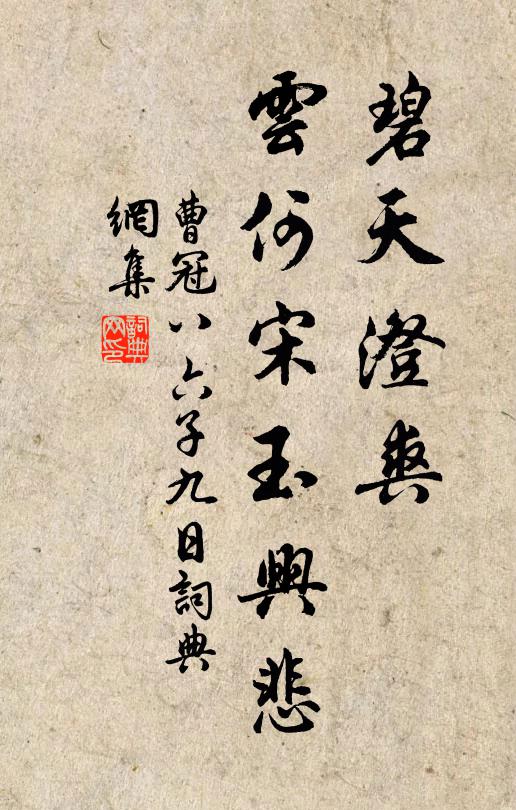 碧天澄爽
雲何宋玉興悲
曹冠八六子九日詞典
網集
詞典
网印